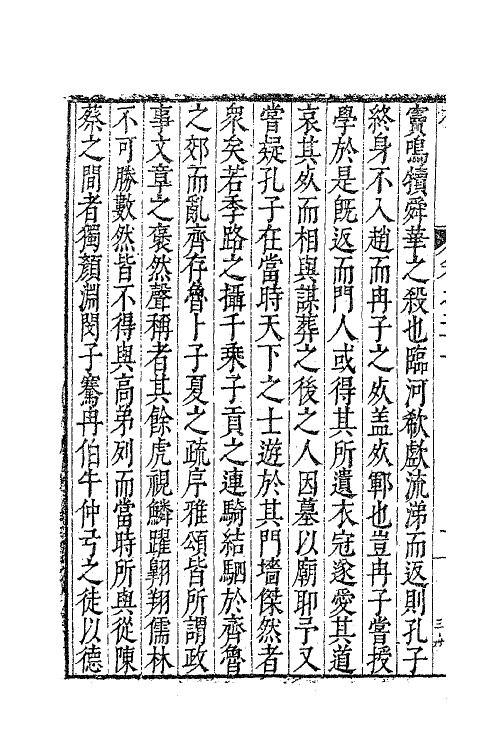 竇鳴犢舜華之殺也臨河欷歔流涕而返則孔子
終身不入趙而冉子之㱙盖㱙鄆也豈冉子嘗授
學於是旣返而門人或得其所遺衣冠遂愛其道
哀其㱙而相與謀葬之後之人因墓以廟耶予又
嘗疑孔子在當時天下之士遊於其門墻傑然者
衆矣若季路之攝千乘子貢之連騎結駟於齊魯
之郊而亂齊存魯卜子夏之疏序雅頌皆所謂政
事文章之褎然聲稱者其餘虎視鱗躍翺翔儒林
不可勝數然皆不得與高弟列而當時所與從陳
蔡之間者獨顏淵閔子騫冉伯牛仲弓之徒以德